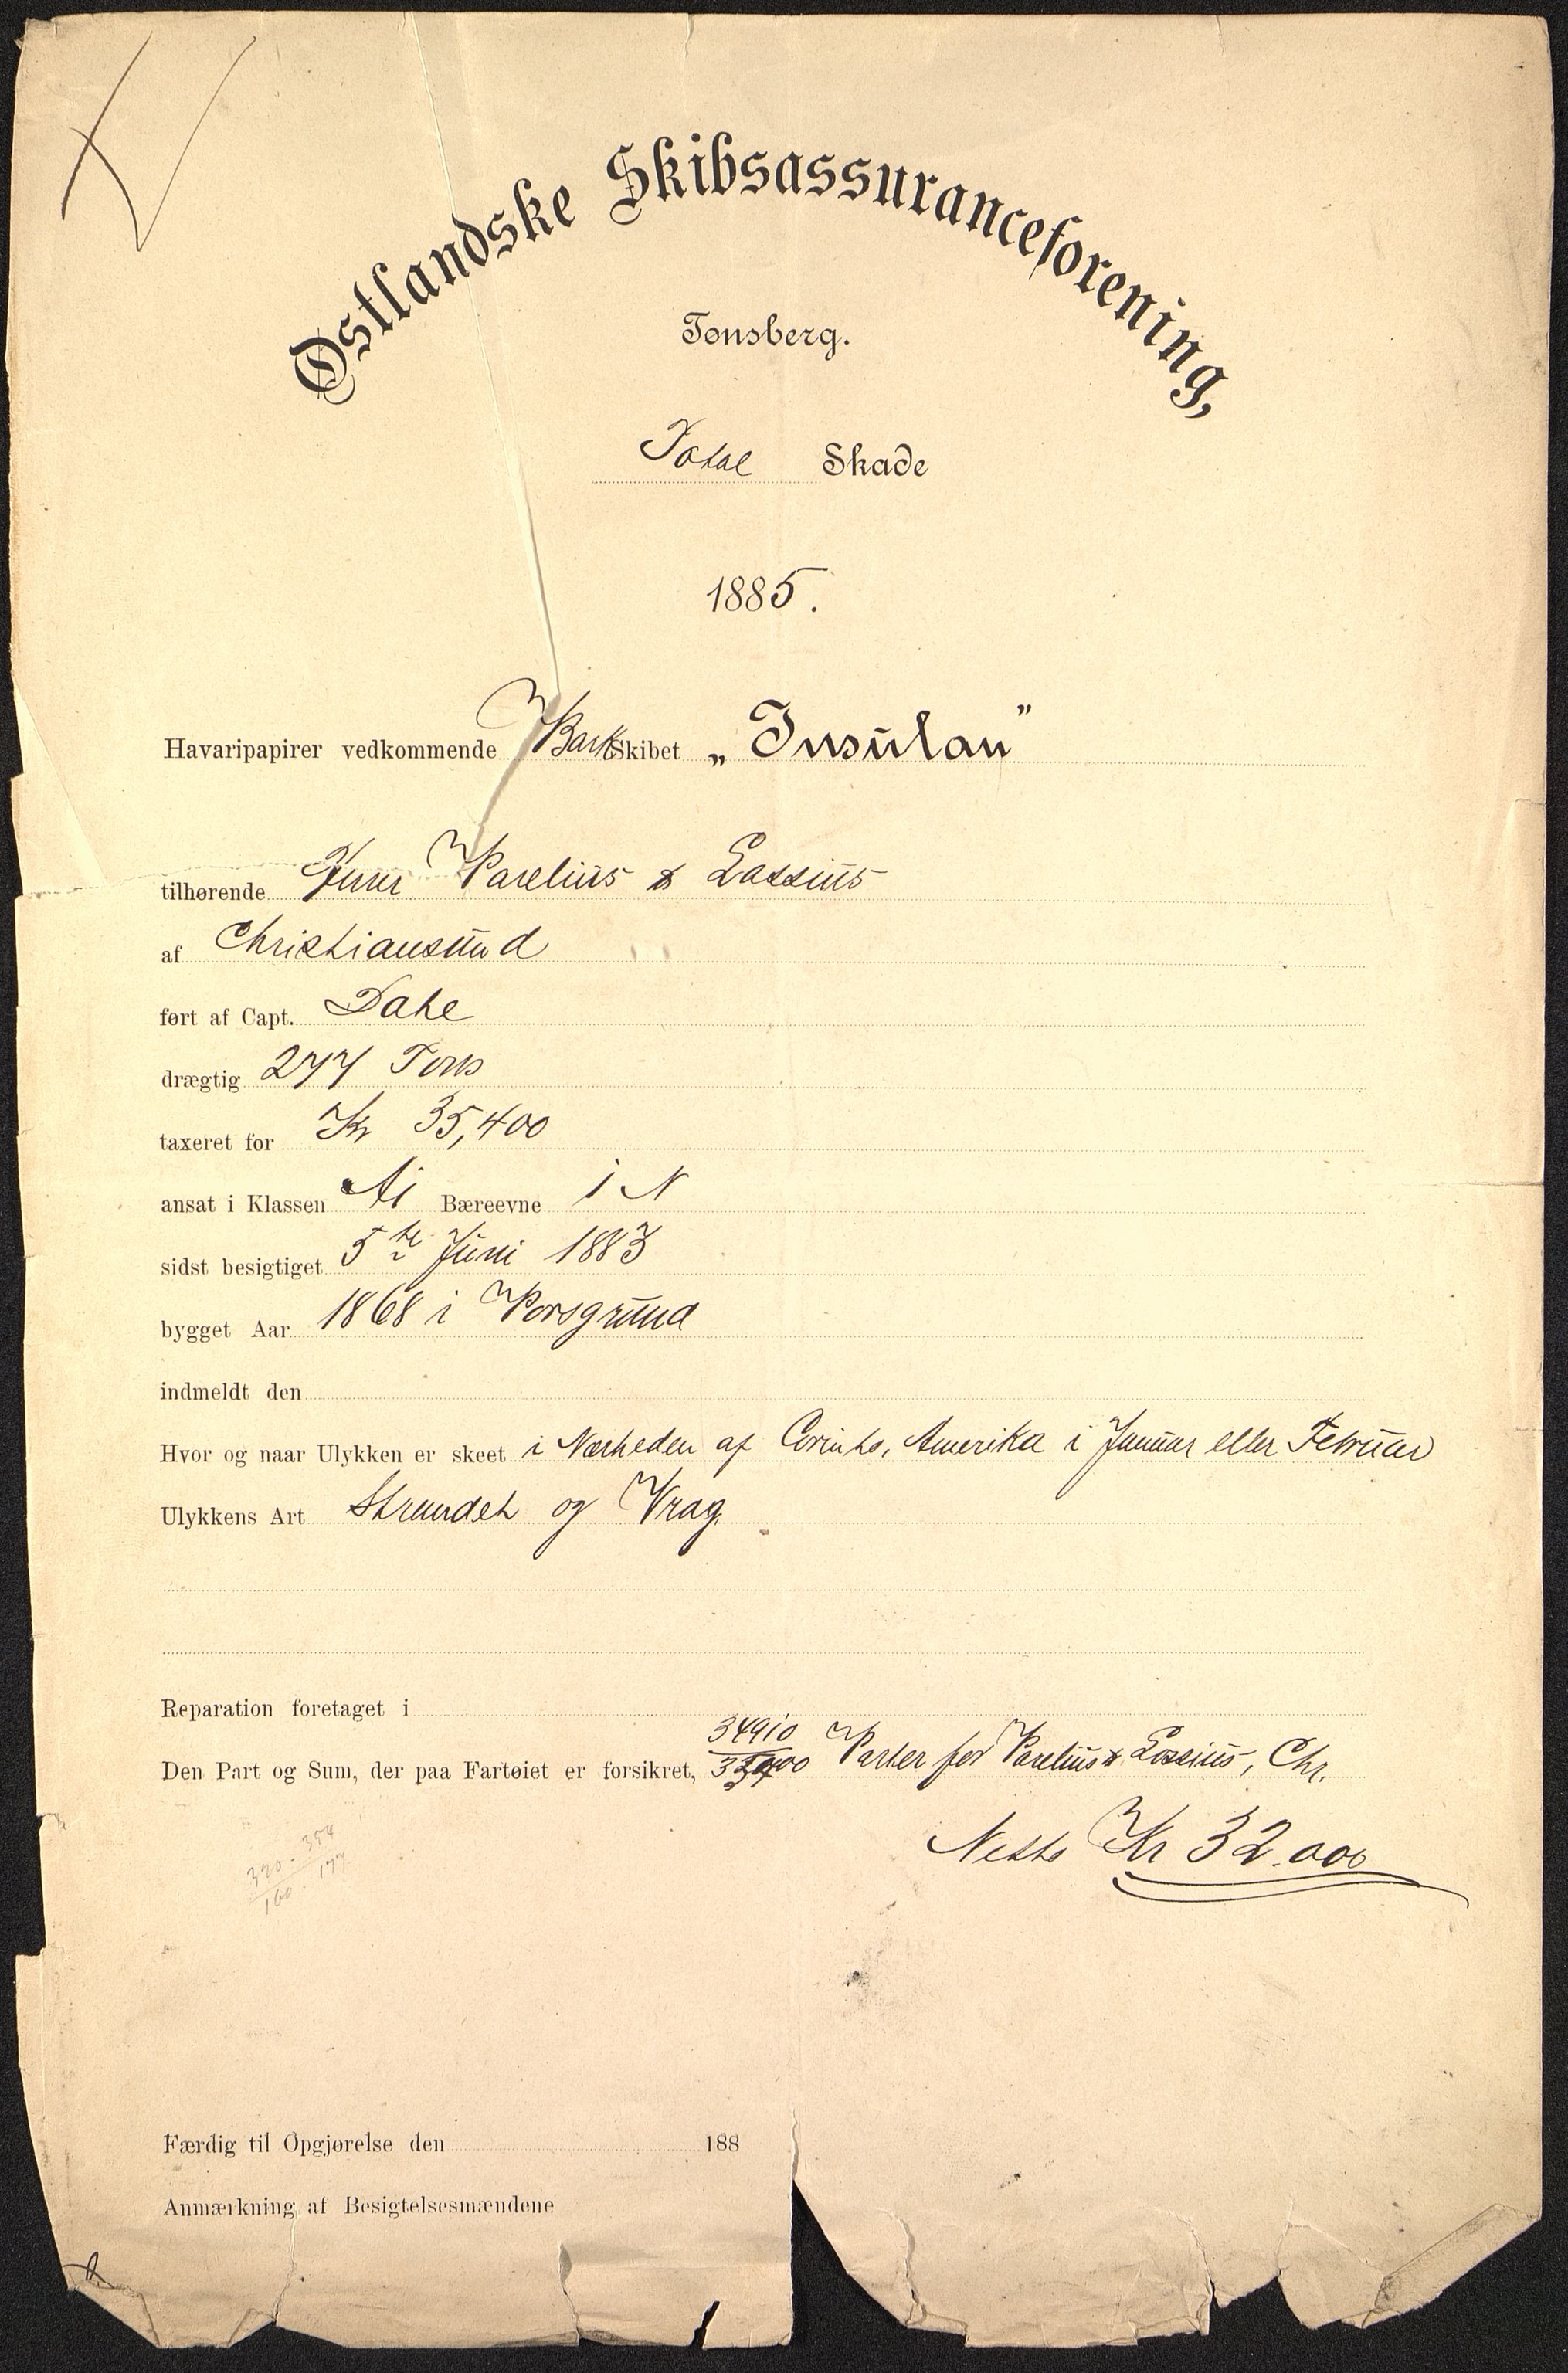 Østlandske Skibsassuranceforening,
Tønsberg.
Total Skade
1885.
Havaripapirer vedkommende Bark Skibet „Insulan”
tilhørende Herrer Parelius & Lossius
af Christiansund
ført af Capt. Dahl
drægtig 277 Tons
taxeret for Kr 35,400
ansat i Klassen A1 Bæreevne 1 N
sidst besigtiget 5te Juni 1883
bygget Aar 1868 i Porsgrund
indmeldt den
Hvor og naar Ulykken er skeet i Nærheden af Corinto, Amerika i Januar eller Februar
Ulykkens Art Strandet og Vrag.
Reparation foretaget i
34910
Den Part og Sum, der paa Fartøiet er forsikret, Parter for Parelius & Lossius, Chr.
Netto Kr 32.000
320 - 354
160 - 177
Færdig til Opgjørelse den 188
Anmærkning af Besigtelsesmændene